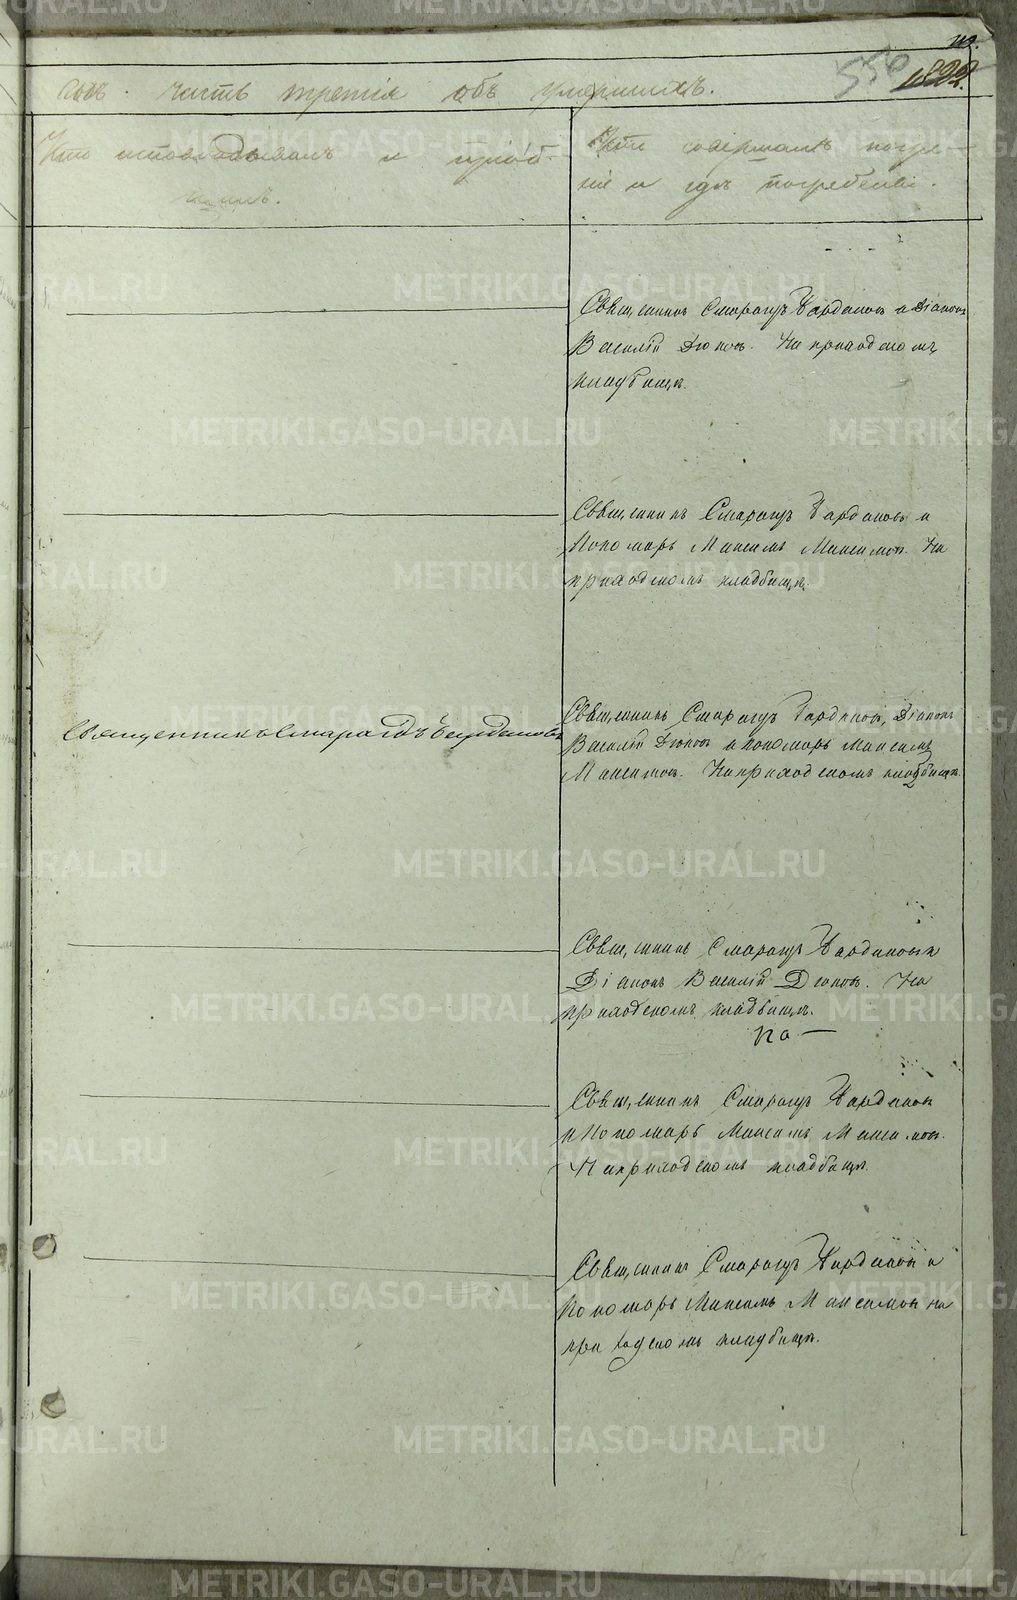 550
годъ. часть третія объ умершихъ.
Кто исповѣдывалъ и пріоб-
щилъ.
Кто совершалъ погре-
ніе и гдѣ погребены.
Священникъ Смарагдъ и Діаконъ
Василій Дюковъ. На приходскомъ
кладбищѣ.
Священникъ Смарагдъ и
Пономарь Максимъ Максимов. На
приходскомъ кладбищѣ.
Священникъ Смарагдъ
Священникъ Смарагдъ Діаконъ
Василій Дюковъ и пономарь Максимъ
Максимов. На приходскомъ кладбищѣ.
Священникъ Смарагдъ и
Діаконъ Василій Дюковъ. На
приходскомъ кладбищѣ.
Священникъ Смарагдъ
и Пономарь Максимъ Максимов.
На приходскомъ кладбищѣ.
Священникъ Смарагдъ и
Пономарь Максимъ Максимов на
приходскомъ кладбищѣ.
METRIKI.GASO-URAL.RU